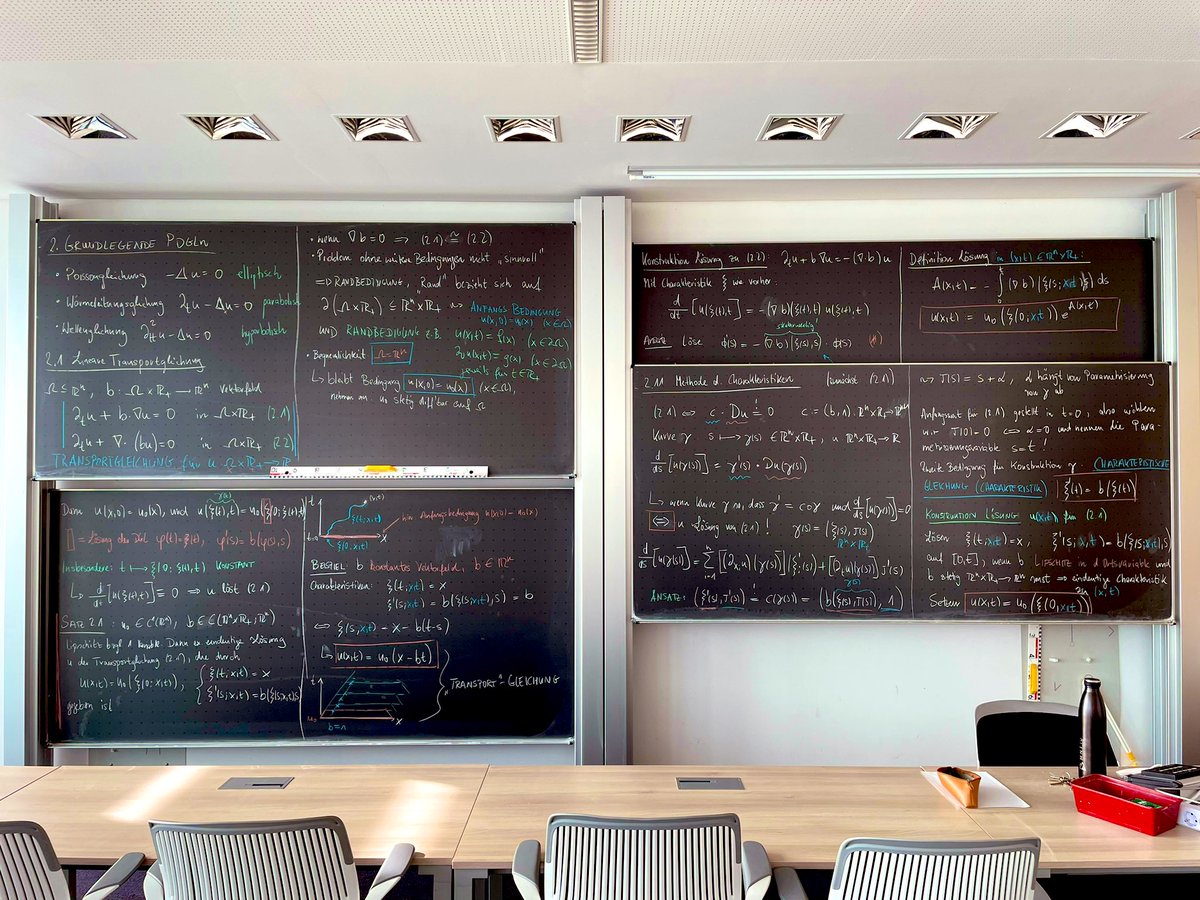 2. GRUNDLEGENDE PDGLn
• Poissongleichung −Δu = 0 elliptisch
• Wärmeleitungsglchung ∂ₜu − Δu = 0 parabolisch
• Wellenglchung ∂ₜₜ²u − Δu = 0 hyperbolisch
2.1 Lineare Transportglchung
Ω ⊆ ℝⁿ, b: Ω×ℝ₊ → ℝⁿ Vektorfeld
∂ₜu + b·∇u = 0 in Ω×ℝ₊ (2.1)
∂ₜu + ∇·(bu) = 0 in Ω×ℝ₊ (2.2)
TRANSPORTGLEICHUNG für u: Ω×ℝ₊ → ℝ
• wenn ∇·b = 0 ⟹ (2.1) ≅ (2.2)
• Problem ohne weitere Bedingungen nicht „sinnvoll"
⟹ RANDBEDINGUNG, „Rand" bezieht sich auf
∂(Ω×ℝ₊) ⊆ ℝⁿ×ℝ₊ ⇝ ANFANGSBEDINGUNG
u(x,0) = u₀(x) (x∈Ω)
UND RANDBEDIGUNG z.B. u(x,t) = f(x) (x∈∂Ω)
∂ᵥu(x,t) = g(x) (x∈∂Ω)
jeweils für t∈ℝ₊
• Bequemlichkeit Ω = ℝⁿ
↳ bleibt Bedingung u(x,0) = u₀(x) (x∈Ω),
nehmen an u₀ sktig diff'bar auf Ω
Dann u(x,0) = u₀(x), und u(ξ(t),t) = u₀(ξ(0;ξ(t),t))
γ(t)
= Lösung des Dgl φ(t) = ξ(t), φ'(s) = b(φ(s),s)
Insbesondere: t ↦ ξ(0; ξ(t),t) KONSTANT
↳ d/dt [u(ξ(t),t)] = 0 ⟹ u löst (2.1)
SATZ 2.1: u₀ ∈ C¹(ℝⁿ), b ∈ C(ℝⁿ×ℝ₊;ℝⁿ)
Lipschitz bzgl 1. Dann ex eindeutige Lösung
u der Transportglchung (2.1), die durch
u(x,t) = u₀(ξ(0;x,t)), { ξ(t;x,t) = x
ξ'(s;x,t) = b(ξ(s;x,t),s)
gegeben ist
t
(x,t)
ξ(t;x,t)
t=0
ξ(0;x,t)
x
hier Anfangsbedingung u(x,0) = u₀(x)
BEISPIEL: b konstantes Vektorfeld, b ∈ ℝⁿ
Charakteristiken: ξ(t;x,t) = x
ξ'(s;x,t) = b(ξ(s;x,t),s) = b
⟺ ξ(s;x,t) = x − b(t−s)
↳ u(x,t) = u₀(x − bt)
t
u₀
x
b=1
„TRANSPORT"-GLEICHUNG
Konstruktion Lösung zu (2.2): ∂ₜu + b∇u = −(∇·b)u
Mit Charakteristik ξ wie vorher:
d/dt [u(ξ(t),t)] = −(∇b)(ξ(t),t) u(ξ(t),t)
Ansatz: Löse φ̇(s) = −(∇b)(ξ(s),s) · φ(s) (*)
Definition Lösung in (x,t) ∈ ℝⁿ×ℝ₊:
A(x,t) = −∫₀ᵗ (∇b)(ξ(s;x,t),s) ds
u(x,t) = u₀(ξ(0;x,t)) e^{A(x,t)}
2.1.1 Methode d. Charakteristiken (zunächst (2.1))
(2.1) ⟺ c·Du = 0 c = (b,1): ℝⁿ×ℝ₊→ℝⁿ⁺¹
Kurve γ: s ↦ γ(s) ∈ ℝⁿ×ℝ₊, u: ℝⁿ×ℝ₊ → ℝ
d/ds [u(γ(s))] = γ'(s) · Du(γ(s))
↳ wenn Kurve γ so, dass γ' = c∘γ und d/ds [u(γ(s))] = 0
⟺ u Lösung von (2.1)! γ(s) = (ξ(s), τ(s))
ℝⁿ×ℝ₊
d/ds [u(γ(s))] = Σᵢ₌₁ⁿ [(∂ₓᵢu)(γ(s))] ξᵢ'(s) + [∂ₜu(γ(s))] τ'(s)
ANSATZ: (ξ'(s), τ'(s)) = c(γ(s)) = (b(ξ(s),τ(s)), 1)
γ(s)
⇝ τ(s) = s + α, α hängt von Parametrisierung
von γ ab
Anfangswert für (2.1) gestellt in t=0, also wählen
wir τ(0) = 0 ⟺ α = 0 und nennen die Para-
metrisierungsvariable s = t!
Zweite Bedingung für Konstruktion γ (CHARAKTERISTISCHE
GLEICHUNG (CHARAKTERISTIK) ξ'(t) = b(ξ(t))
KONSTRUKTION LÖSUNG u(x,t) für (2.1)
Lösen ξ(t;x,t) = x, ξ'(s;x,t) = b(ξ(s;x,t),s)
auf [0,t], wenn b LIPSCHITZ in d. Ortsvariable und
b sktig ℝⁿ×ℝ₊→ℝⁿ sonst ⟹ eindeutige Charakteristik
zu (x,t)
Setzen u(x,t) = u₀(ξ(0;x,t))